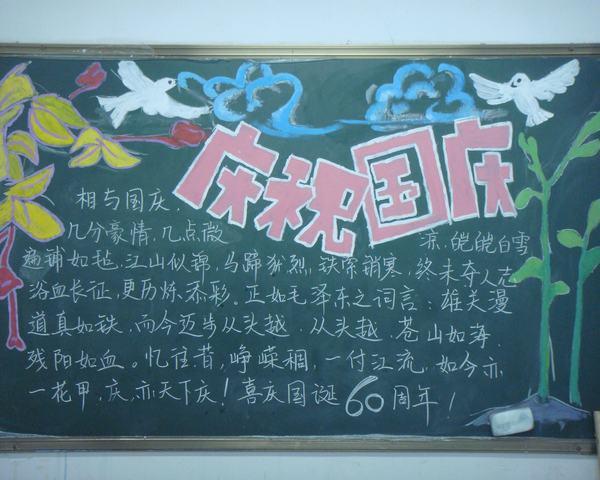 庆祝国庆
相与国庆,
几分豪情,几点微凉,皑皑白雪
遍铺如毡,江山似锦,马蹄犹烈,铁索销寒,终未夺人志
浴血长征,更历炼添彩。正如毛泽东之词言:雄关漫
道真如铁,而今迈步从头越,从头越,苍山如海,
残阳如血。忆往昔,峥嵘稠,一付江流,如今亦
一花甲,庆,亦天下庆!喜庆国诞60周年!